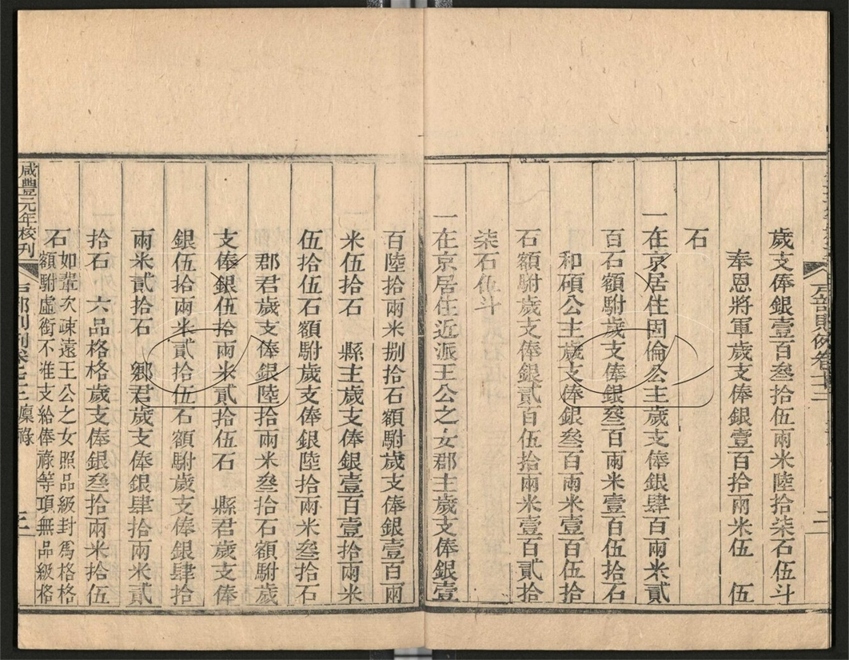 戶部則例卷七十三
歲支俸銀壹百叁拾伍兩米陸拾柒石伍斗
奉恩將軍歲支俸銀壹百拾兩米伍　伍
石
一在京居住固倫公主歲支俸銀肆百兩米貳
百石額駙歲支俸銀叁百兩米壹百伍拾石
和碩公主歲支俸銀叁百兩米壹百伍拾
石額駙歲支俸銀貳百伍拾兩米壹百貳拾
柒石伍斗
一在京居住近派王公之女郡主歲支俸銀壹
百陸拾兩米捌拾石額駙歲支俸銀壹百兩
米伍拾石　縣主歲支俸銀壹百壹拾兩米
伍拾伍石額駙歲支俸銀陸拾兩米叁拾石
郡君歲支俸銀陸拾兩米叁拾石額駙歲
支俸銀伍拾兩米貳拾伍石　縣君歲支俸
銀伍拾兩米貳拾伍石額駙歲支俸銀肆拾
兩米貳拾石　鄉君歲支俸銀肆拾兩米貳
拾石　六品格格歲支俸銀叁拾兩米拾伍
石
如輩次疎遠王公之女照品級封爲格格
額駙虛銜不准支給俸祿等項無品級格
咸豐元年校刊
戶部則例卷七十三 廩祿 三